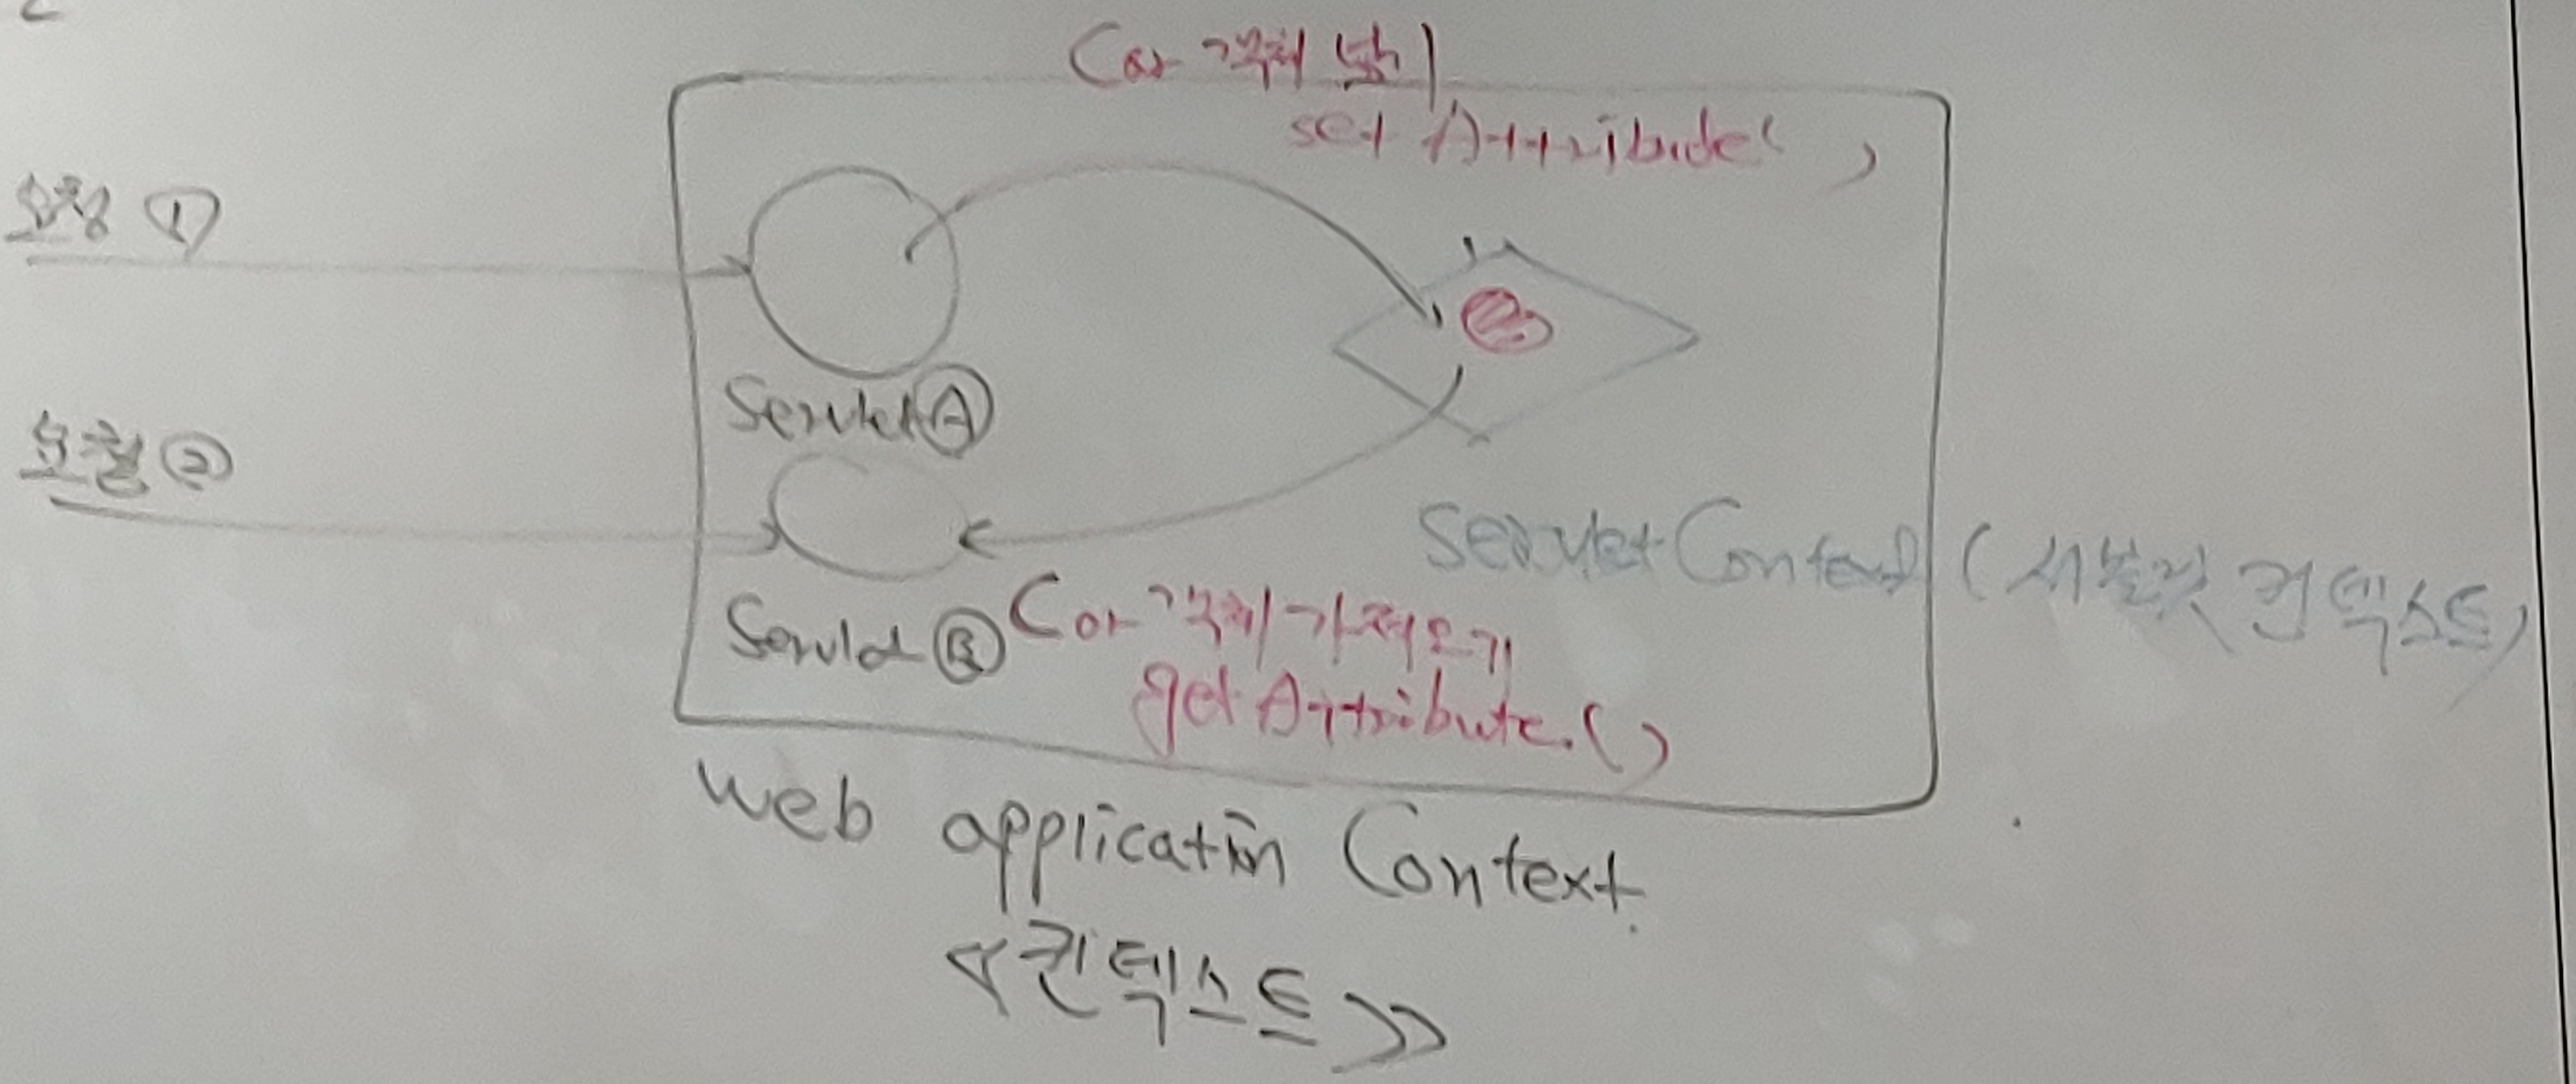 Car 객체
set Attribute( )
요청 ①
Servlet Ⓐ
요청 ②
Servlet Context (서블릿 컨텍스트)
Servlet Ⓑ
Car 객체 가져오기
get Attribute.( )
web application Context
<<컨텍스트>>